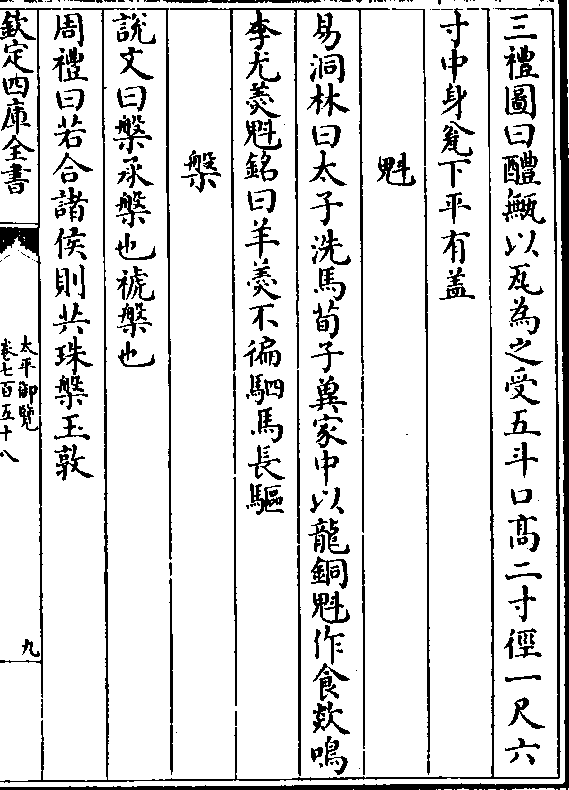 三禮圖曰醴甒以瓦為之受五斗口髙二寸徑一尺六
寸中身兊下平有盖
魁
易洞林曰太子洗馬荀子兾家中以龍銅魁作食欻鳴
李尤羮魁銘曰羊羮不徧駟馬長驅
槃
説文曰槃承槃也褫槃也
周禮曰若合諸侯則共珠槃玉敦
欽定四庫全書
太平御覽
卷七百五十八
九